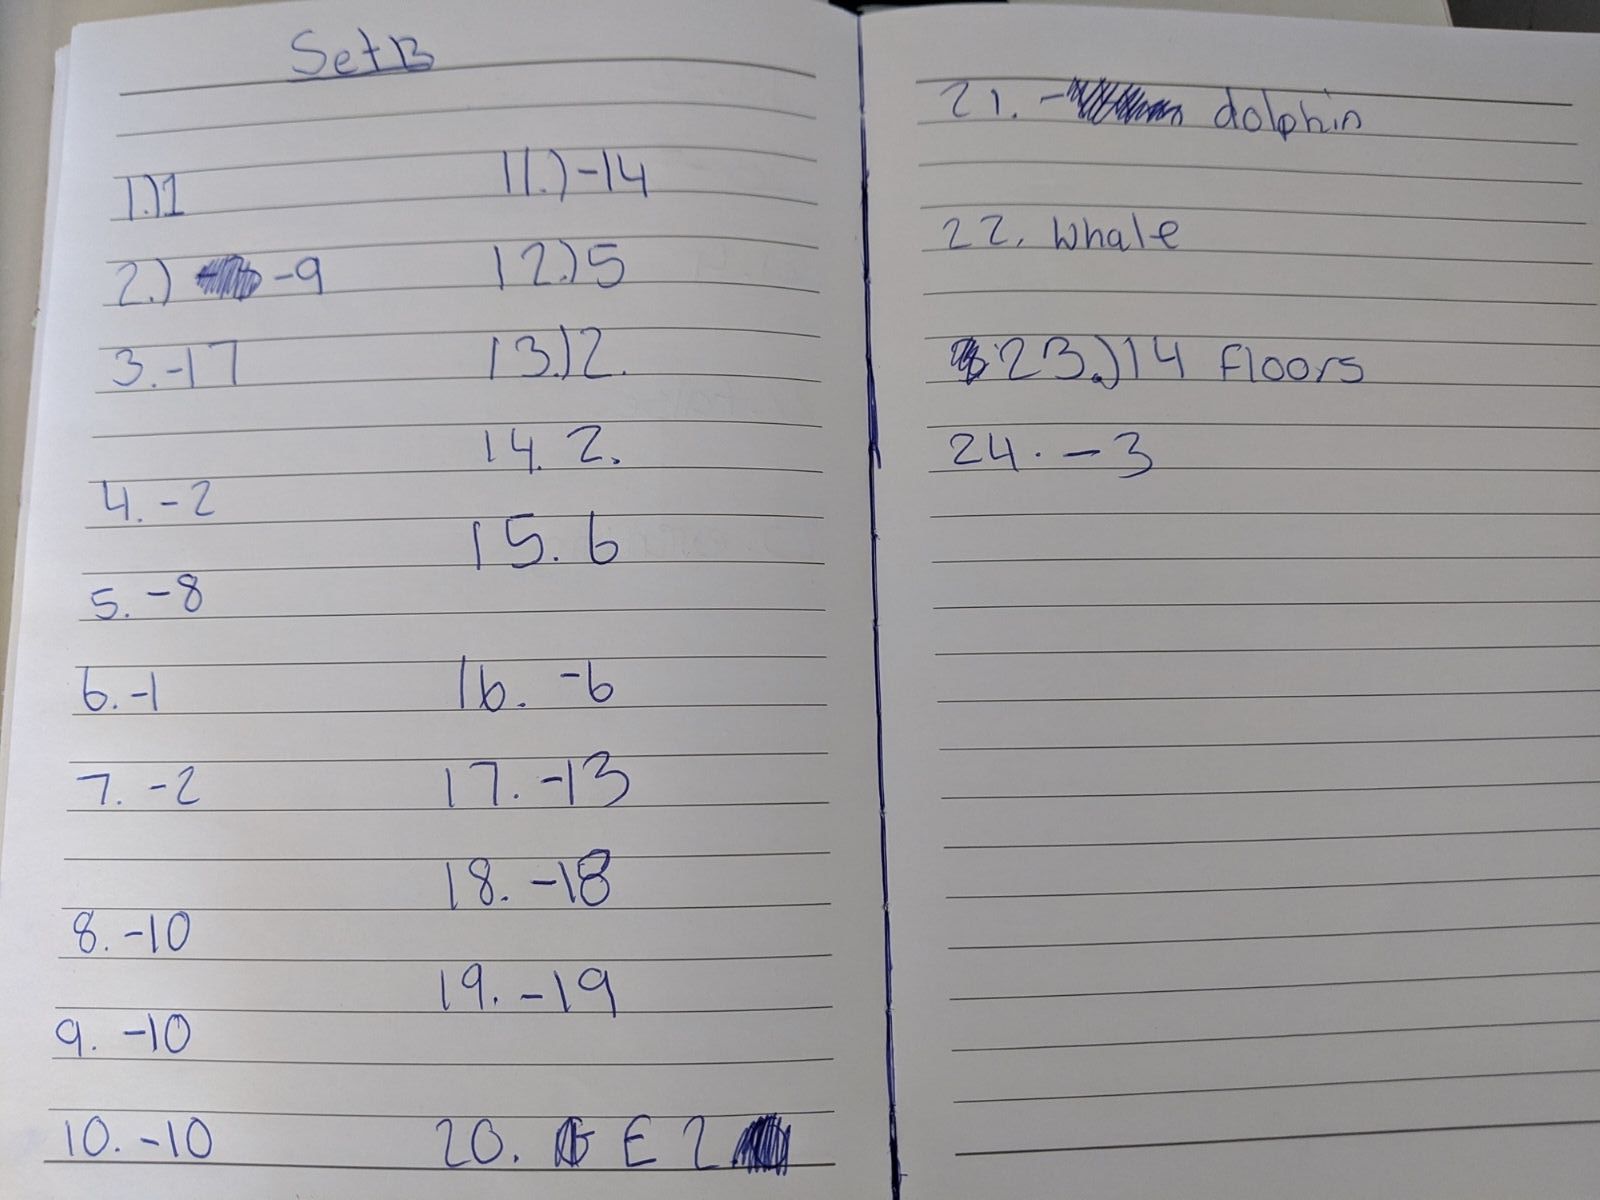 Set B
1.) 1
2.) -9
3. -17
4. -2
5. -8
6. -1
7. -2
8. -10
9. -10
10. -10
11.) -14
12.) 5
13.) 2.
14. 2.
15. 6
16. -6
17. -13
18. -18
19. -19
20. E 2
21. - dolphin
22. Whale
23.) 14 floors
24. -3